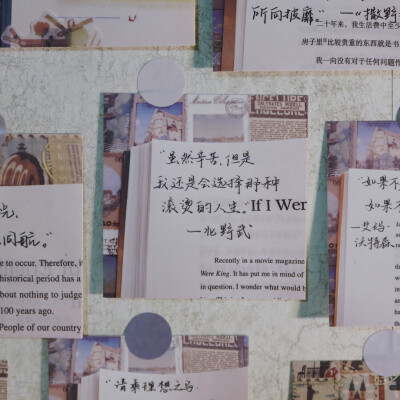 所向披靡。”—《撒野
二十年来，我生活费中至少
房子里比较贵重的东西就是书
我一向没有对于任何问题作
“虽然辛苦，但是
我还是会选择那种
滚烫的人生。”If I Wer
—北野武
Recently in a movie magazine
Were King. It has put me in mind of
in question. I wonder what would h
光，
同航。”
e to occur. Therefore, i
historical period has a
bout nothing to judge
100 years ago.
People of our country
“如果不
如果不
—艾玛·
沃特森
“请乘理想之马